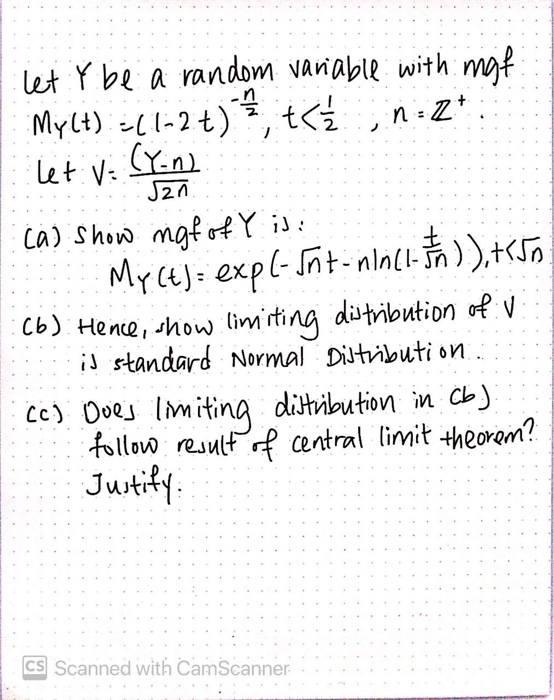 let Y be a random variable with mgf
My(t) = (1-2t)^{-n/2}, t<1/2, n = ℤ⁺.
Let V = (Y-n)/√2n
(a) Show mgf of Y is:
My(t) = exp(-√n t - n ln(1- t/√n)), t<√n
(b) Hence, show limiting distribution of V
is standard Normal Distribution.
(c) Does limiting distribution in (b)
follow result of central limit theorem?
Justify.
CS Scanned with CamScanner